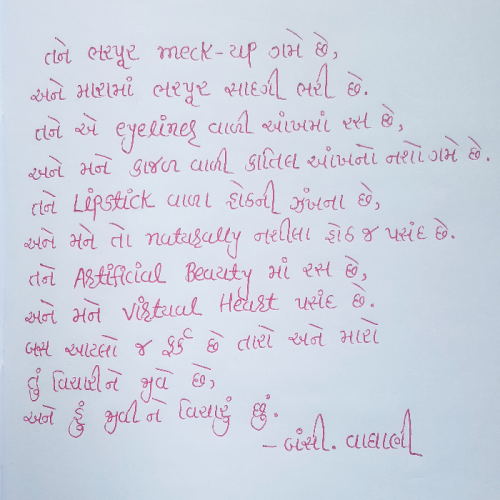 તને ભરપૂર meck-up ગમે છે,
અને મારામાં ભરપૂર સાદગી ભરી છે.
તને એ eyeliner વાળી આંખમાં રસ છે,
અને મને કાજળ વાળી કાતિલ આંખનો નશો ગમે છે.
તને Lipstick વાળા હોઠની ઝંખના છે,
અને મને તો naturally નશીલા હોઠ જ પસંદ છે.
તને Artificial Beauty માં રસ છે,
અને મને Virtual Heart પસંદ છે.
બસ આટલો જ ફર્ક છે તારો અને મારો
તું વિચારીને જીવે છે,
અને હું જીવીને વિચારું છું.
- બંસી. વાઘાણી